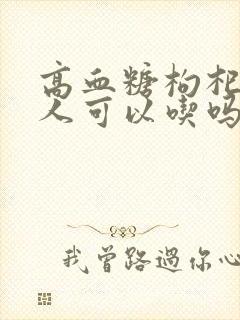 高血糖枸杞
人可以喫吗
我曾路過你心